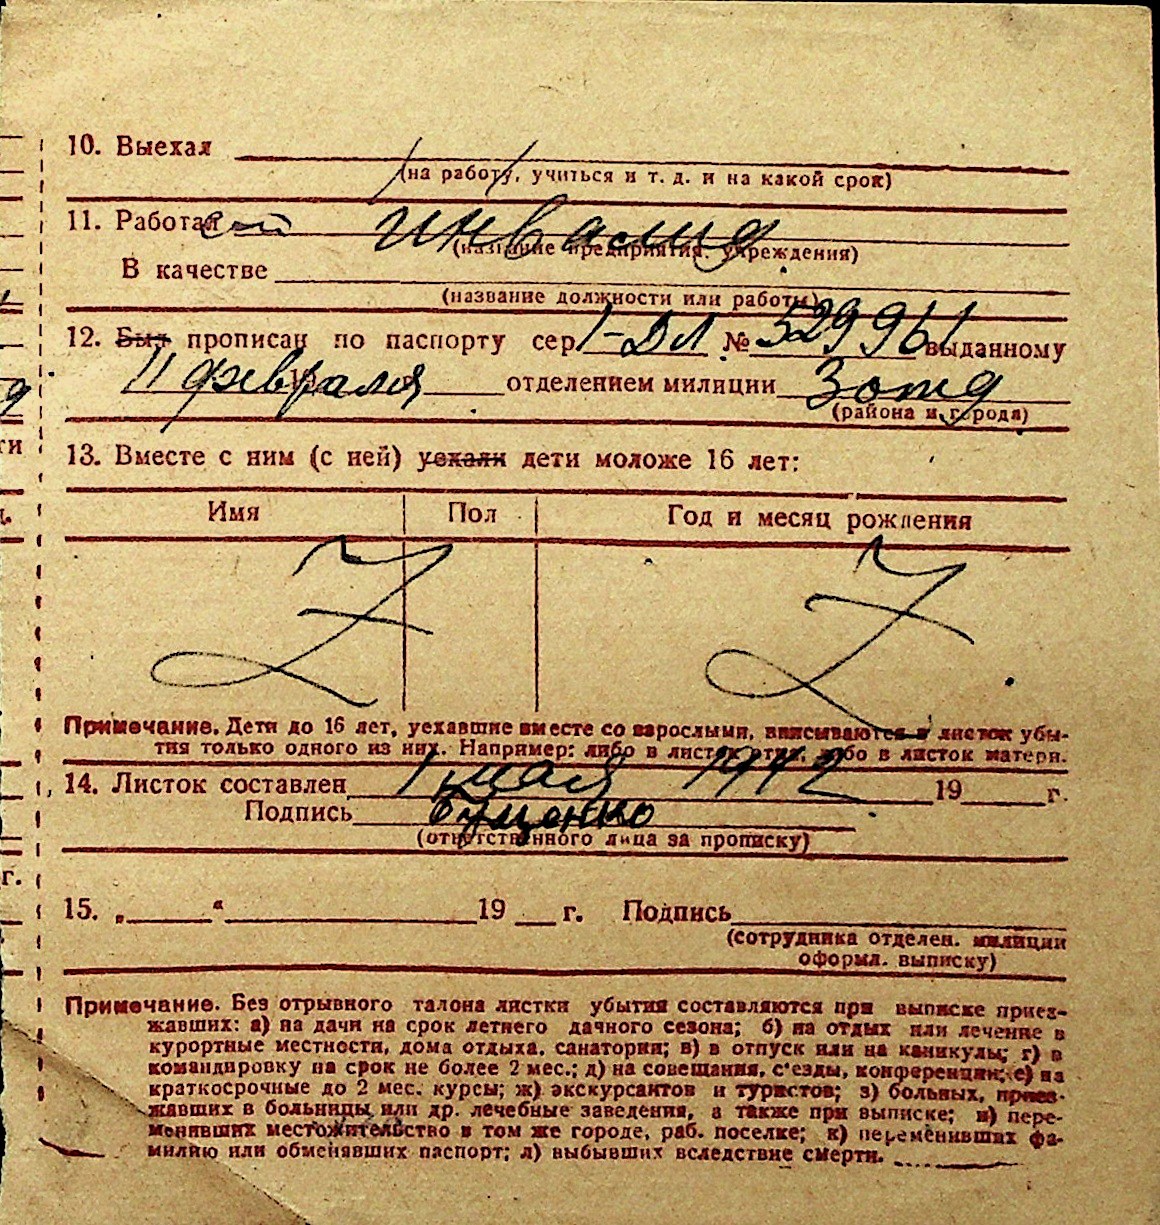 10. Выехал
(на работу, учиться и т. д. и на какой срок)
11. Работал инвалид
(название предприятия. учреждения)
В качестве
(название должности или работы)
12. Был прописан по паспорту сер. 1-ДЛ № 529961 выданному
11 февраля отделением милиции 3 отд
(района и города)
13. Вместе с ним (с ней) уехали дети моложе 16 лет:
Имя Пол Год и месяц рождения
Z Z
Примечание. Дети до 16 лет, уехавшие вместе со взрослыми, вписываются в листок убы-
тия только одного из них. Например: либо в листок отца, либо в листок матери.
14. Листок составлен 1 мая 1942 19 г.
Подпись
(ответственного лица за прописку)
15. „ “ 19 г. Подпись
(сотрудника отделен. милиции
оформл. выписку)
Примечание. Без отрывного талона листки убытия составляются при выписке приез-
жавших: а) на дачи на срок летнего дачного сезона; б) на отдых или лечение в
курортные местности, дома отдыха. санатории; в) в отпуск или на каникулы; г) в
командировку на срок не более 2 мес.; д) на совещания, с'езды, конференции; е) на
краткосрочные до 2 мес. курсы; ж) экскурсантов и туристов; з) больных, приез-
жавших в больницы или др. лечебные заведения, а также при выписке; и) пере-
менивших местожительство в том же городе, раб. поселке; к) переменивших фа-
милию или обменявших паспорт; л) выбывших вследствие смерти.